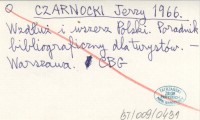 Q CZARNOCKI Jerzy 1966.
Wzdłuż i wszerz Polski. Poradnik
bibliograficzny dla turystów. –
Warszawa. CBG
b7/009/0491